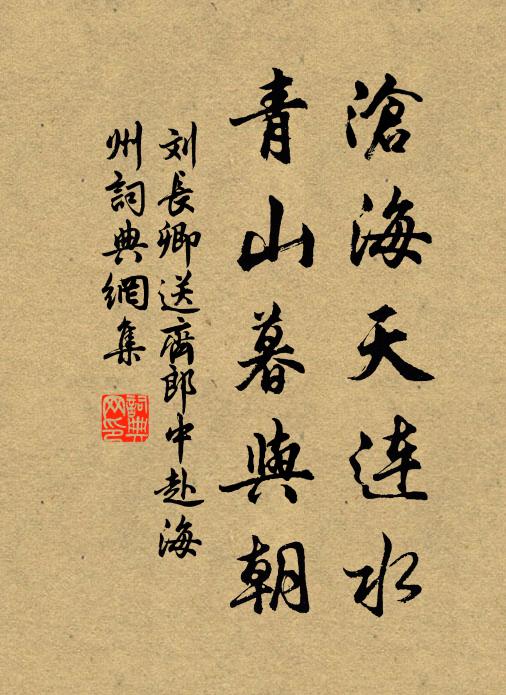 滄海天连水
青山暮與朝
刘長卿送齊郎中赴海
州詞典網集
詞典
网印